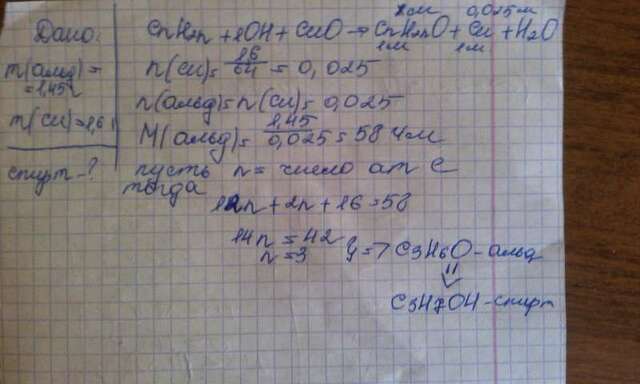 xм 0,025м
Дано:
CnH2n+1OH + CuO → CnH2nO + Cu + H2O
1м 1м
m(альд)=
=1,45г
m(Cu)=1,6г
спирт-?
n(Cu)= 1,6/64 = 0,025
n(альд)=n(Cu)=0,025
M(альд)= 1,45/0,025 = 58 г/м
пусть n = число ат C
тогда
12n+2n+16=58
14n=42
n=3 => C3H6O - альд
C3H7OH - спирт